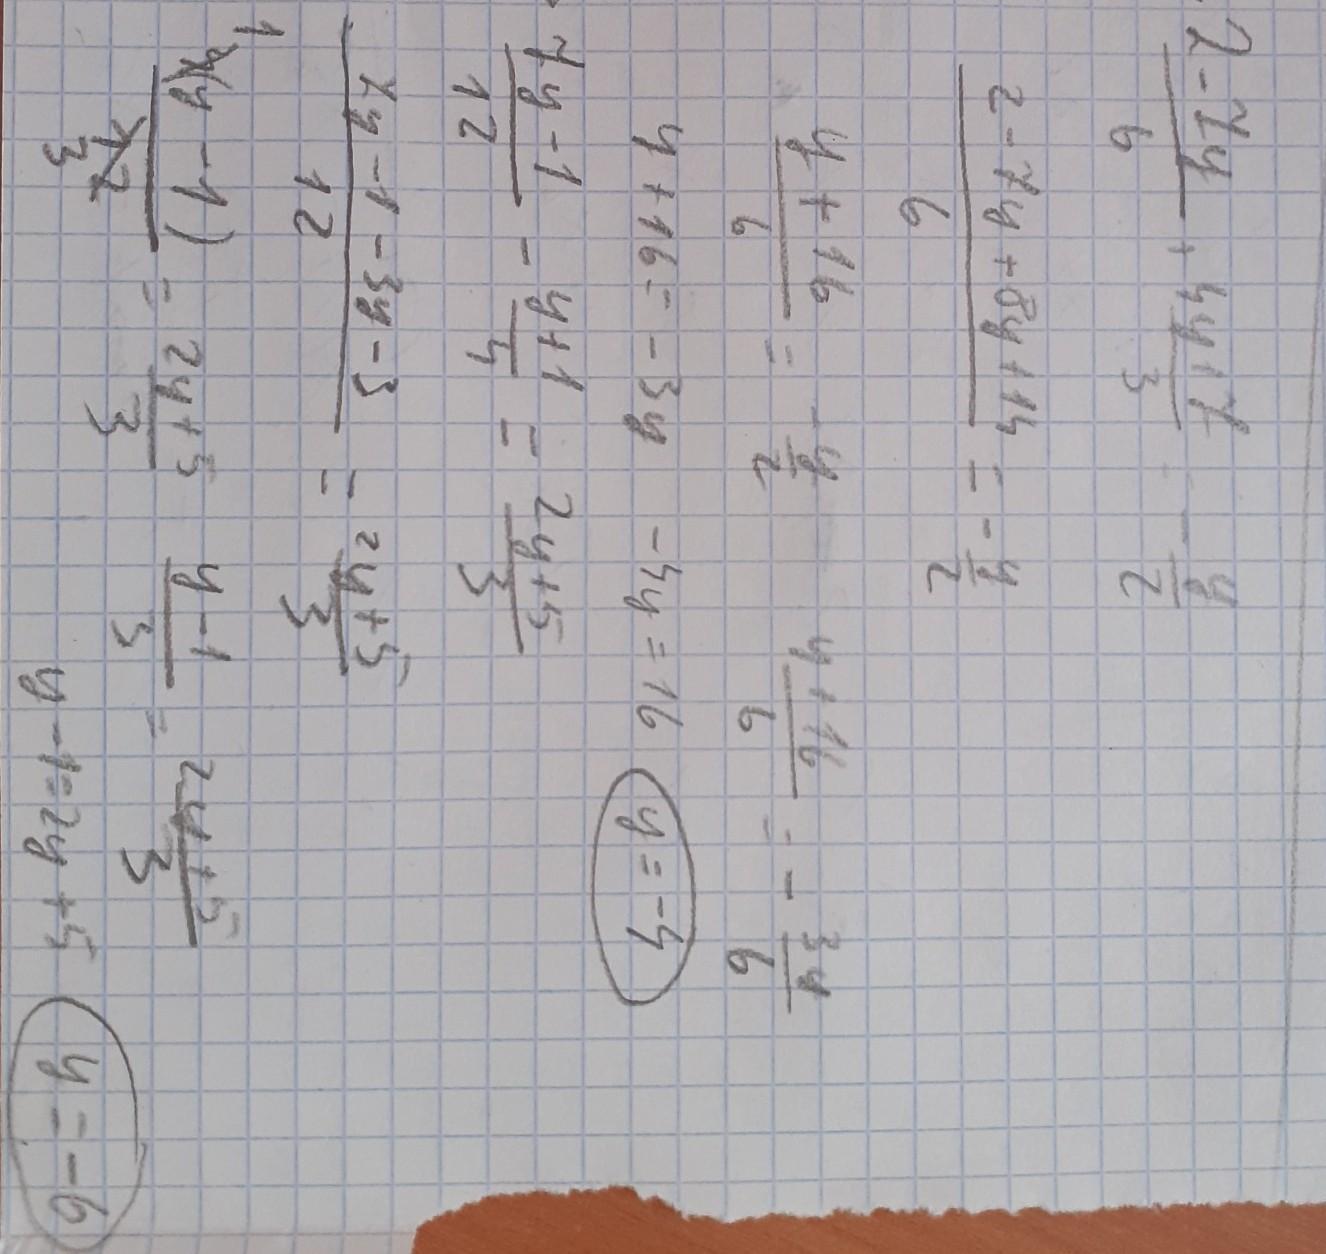 (2-7y)/6 + (4y+7)/3 = -y/2
(2-7y+8y+14)/6 = -y/2
(y+16)/6 = -y/2   (y+16)/6 = -3y/6
y+16=-3y   -4y=16   y=-4
(7y-1)/12 - (y+1)/4 = (2y+5)/3
(7y-1-3y-3)/12 = (2y+5)/3
1 4(y-1)/12 3 = (2y+5)/3   (y-1)/3 = (2y+5)/3
y-1=2y+5   y=-6